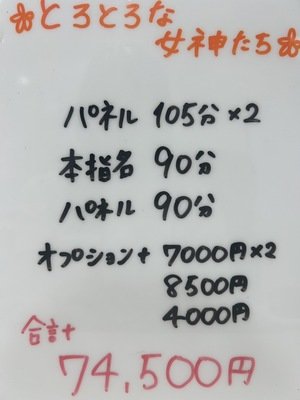 とろとろな
女神たち
パネル 105分×2
本指名 90分
パネル 90分
オプション+ 7000円×2
8500円
4000円
合計+
74,500円